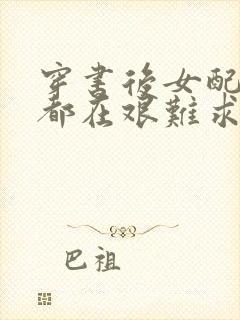 穿書後女配
都在艱難求
巴祖